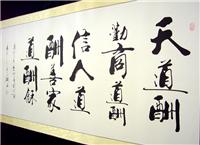 天道酬
勤商道酬
信人道
酬善家
道酬餘